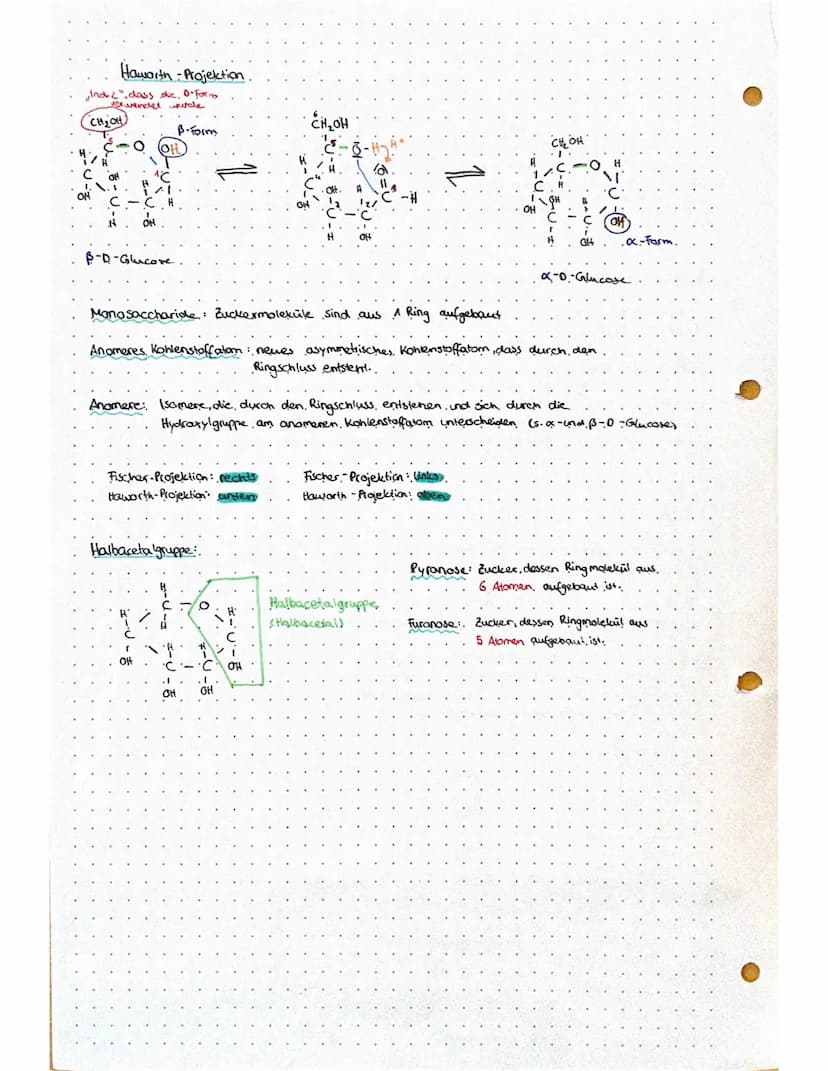 Haworth-Projektion
"Indiz", dass die D-Form
verwendet wurde
CH₂OH
β-Form
C - O OH
H H
C OH H C
OH C - C H
H OH
β-D-Glucose
6
CH₂OH
5
C - O - H H⁺
H H O
C 4 OH H C 1 - H
OH 3 2
C - C
H OH
CH₂OH
H C - O H
C H C
OH OH H OH
C - C
H OH α-Form
α-D-Glucose
Monosaccharide: Zuckermoleküle sind aus 1 Ring aufgebaut
Anomeres Kohlenstoffatom: neues asymmetrisches Kohlenstoffatom, dass durch den
Ringschluss entsteht.
Anomere: Isomere, die durch den Ringschluss entstehen und sich durch die
Hydroxylgruppe am anomeren Kohlenstoffatom unterscheiden (s. α- und β-D-Glucose)
Fischer-Projektion: rechts
Haworth-Projektion: unten
Fischer-Projektion: links
Haworth-Projektion: oben
Halbacetalgruppe:
H
C - O
H H H
C C
OH H H OH
C - C
OH OH
Halbacetalgruppe
(Halbacetal)
Pyranose: Zucker, dessen Ringmolekül aus
6 Atomen aufgebaut ist.
Furanose: Zucker, dessen Ringmolekül aus
5 Atomen aufgebaut ist.